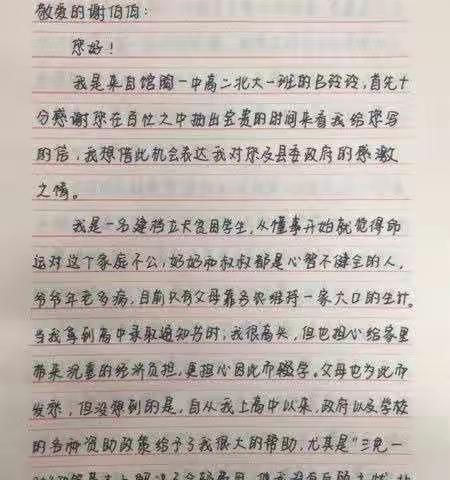 敬爱的谢伯伯:
您好!
我是来自馆陶一中高二北大一班的吕玲玲,首先十
分感谢您在百忙之中抽出宝贵的时间来看我给您写
的信,我想借此机会表达我对您及县委政府的感激
之情。
我是一名建档立卡贫困学生,从懂事开始就觉得命
运对这个家庭不公,奶奶和叔叔都是心智不健全的人,
爷爷年老多病,目前只有父母靠务农维持一家大口的生计。
当我拿到高中录取通知书时,我很高兴,但也担心给家里
带来沉重的经济负担,更担心因此而辍学。父母也为此而
发愁,但没想到的是,自从我上高中以来,政府以及学校
的各种资助政策给予了我很大的帮助,尤其是“三免一